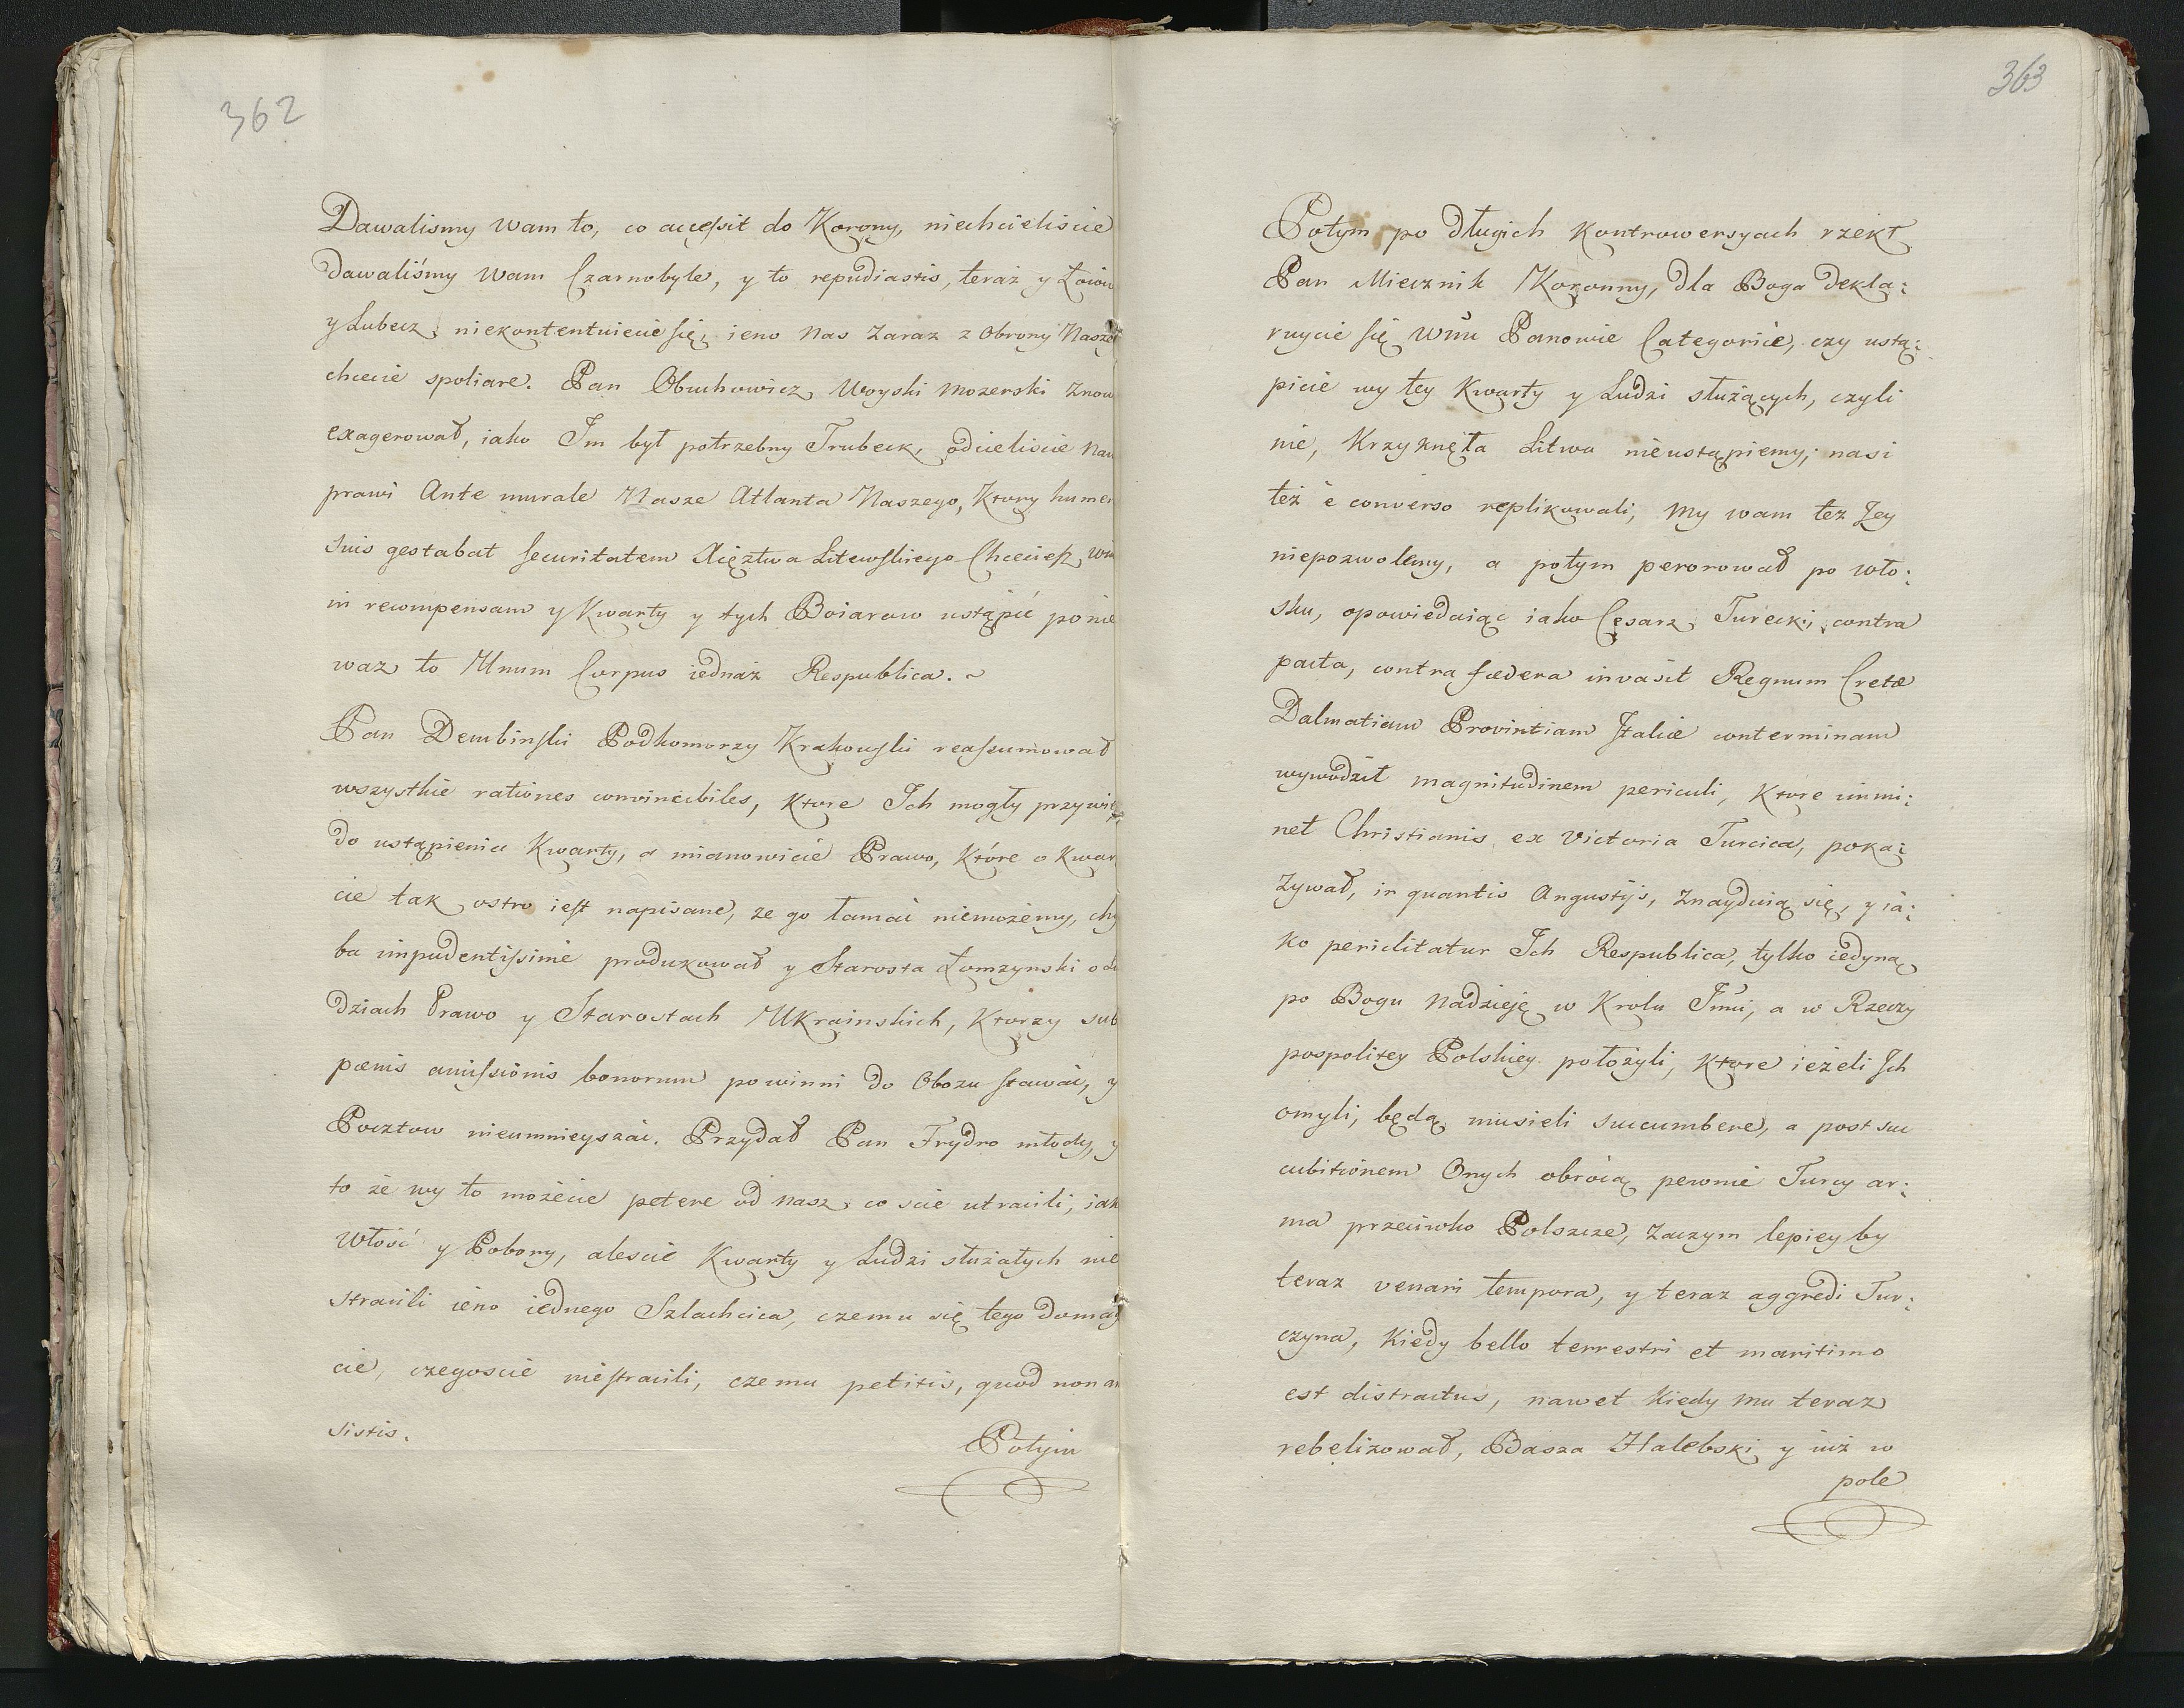 362
Dawalismy Wam to, co accessit do Korony, niechcieliscie
dawaliśmy Wam Czarnobyle, y to repudiastis, teraz y Łoiow
y Lubecz, niekontentuiecie się, ieno Nas Zaraz z Obrony Nasze
chcecie spoliare. Pan Obuchowicz Woyski Mozerski Znow
exagerował, iako Im był potrzebny Trubeck, odcieliscie Nam
prawi Ante murale Nasze Atlanta Naszego, Ktory humer
suis gestabat securitatem Xięztwa Litewskiego
in recompensam y Kwarty y tych Boiarow ustąpić ponie
waz to Unum Corpus iednaż Respublica. ~
Pan Dembinski Podkomorzy Krakowski reassumował
wszystkie rationes convincibiles, Ktore Ich mogły przywieś
do ustąpienia Kwarty, a mianowicie Prawo, Które o Kwar
cie tak ostro iest napisane, ze go łamać niemożemy, chy
ba impudentissime produkował y Starosta Łomzynski o
dziach Prawo y Starostach Ukrainskich, Ktorzy sub
pœnis amissionis bonorum powinni do Obozu stawać, y
Pocztow nieumnieyszać. Przydał Pan Frydro młody, y
to że wy to możecie petere od nasz, co scie utracili, iak
Włość y Pobory, alescie Kwarty y Ludzi służałych nie
stracili ieno iednego Szlachcica, czemu się tego domag
cie, czegoscie niestracili, czemu petitis, quod non am
sistis.
Potym
363
Potym po długich Kontrowersyach rzekł
Pan Miecznik Koronny, dla Boga dekla:
ruycie się Wm Panowie Categorice, czy ustą:
picie wy tey Kwarty y Ludzi służących, czyli
nie, Krzyknęła Litwa nieustąpiemy; nasi
też è converso replikowali, My wam tez Jey
niepozwolemy, a potym perorował po wło:
sku, opowiedaiąc iako Cesarz Turecki, contra
pacta, contra fœdera invasit Regnum Cretæ
Dalmatiam Provintiam Italiæ conterminam
wywodził magnitudinem periculi, Ktore immi:
net Christianis ex Victoria Turcica, poka:
zywał, in quantis Angustijs, Znayduią się, y ia:
ko periclitatur Ich Respublica, tylko iedyną
po Bogu Nadzieję w Krolu Jmci, a w Rzeczy
pospolitey Polskiey położyli, Ktore ieżeli Ich
omyli, będą musieli succumbere, a post suc
cubitionem Onych obrocą pewnie Turcy ar:
ma przeciwko Polszcze, Zaczym lepiey by
teraz venari tempora, y teraz aggredi Tur:
czyna, Kiedy bello terrestri et maritimo
est distractus, nawet Kiedy mu teraz
rebelizował, Basza Halebski y iuż w
pole